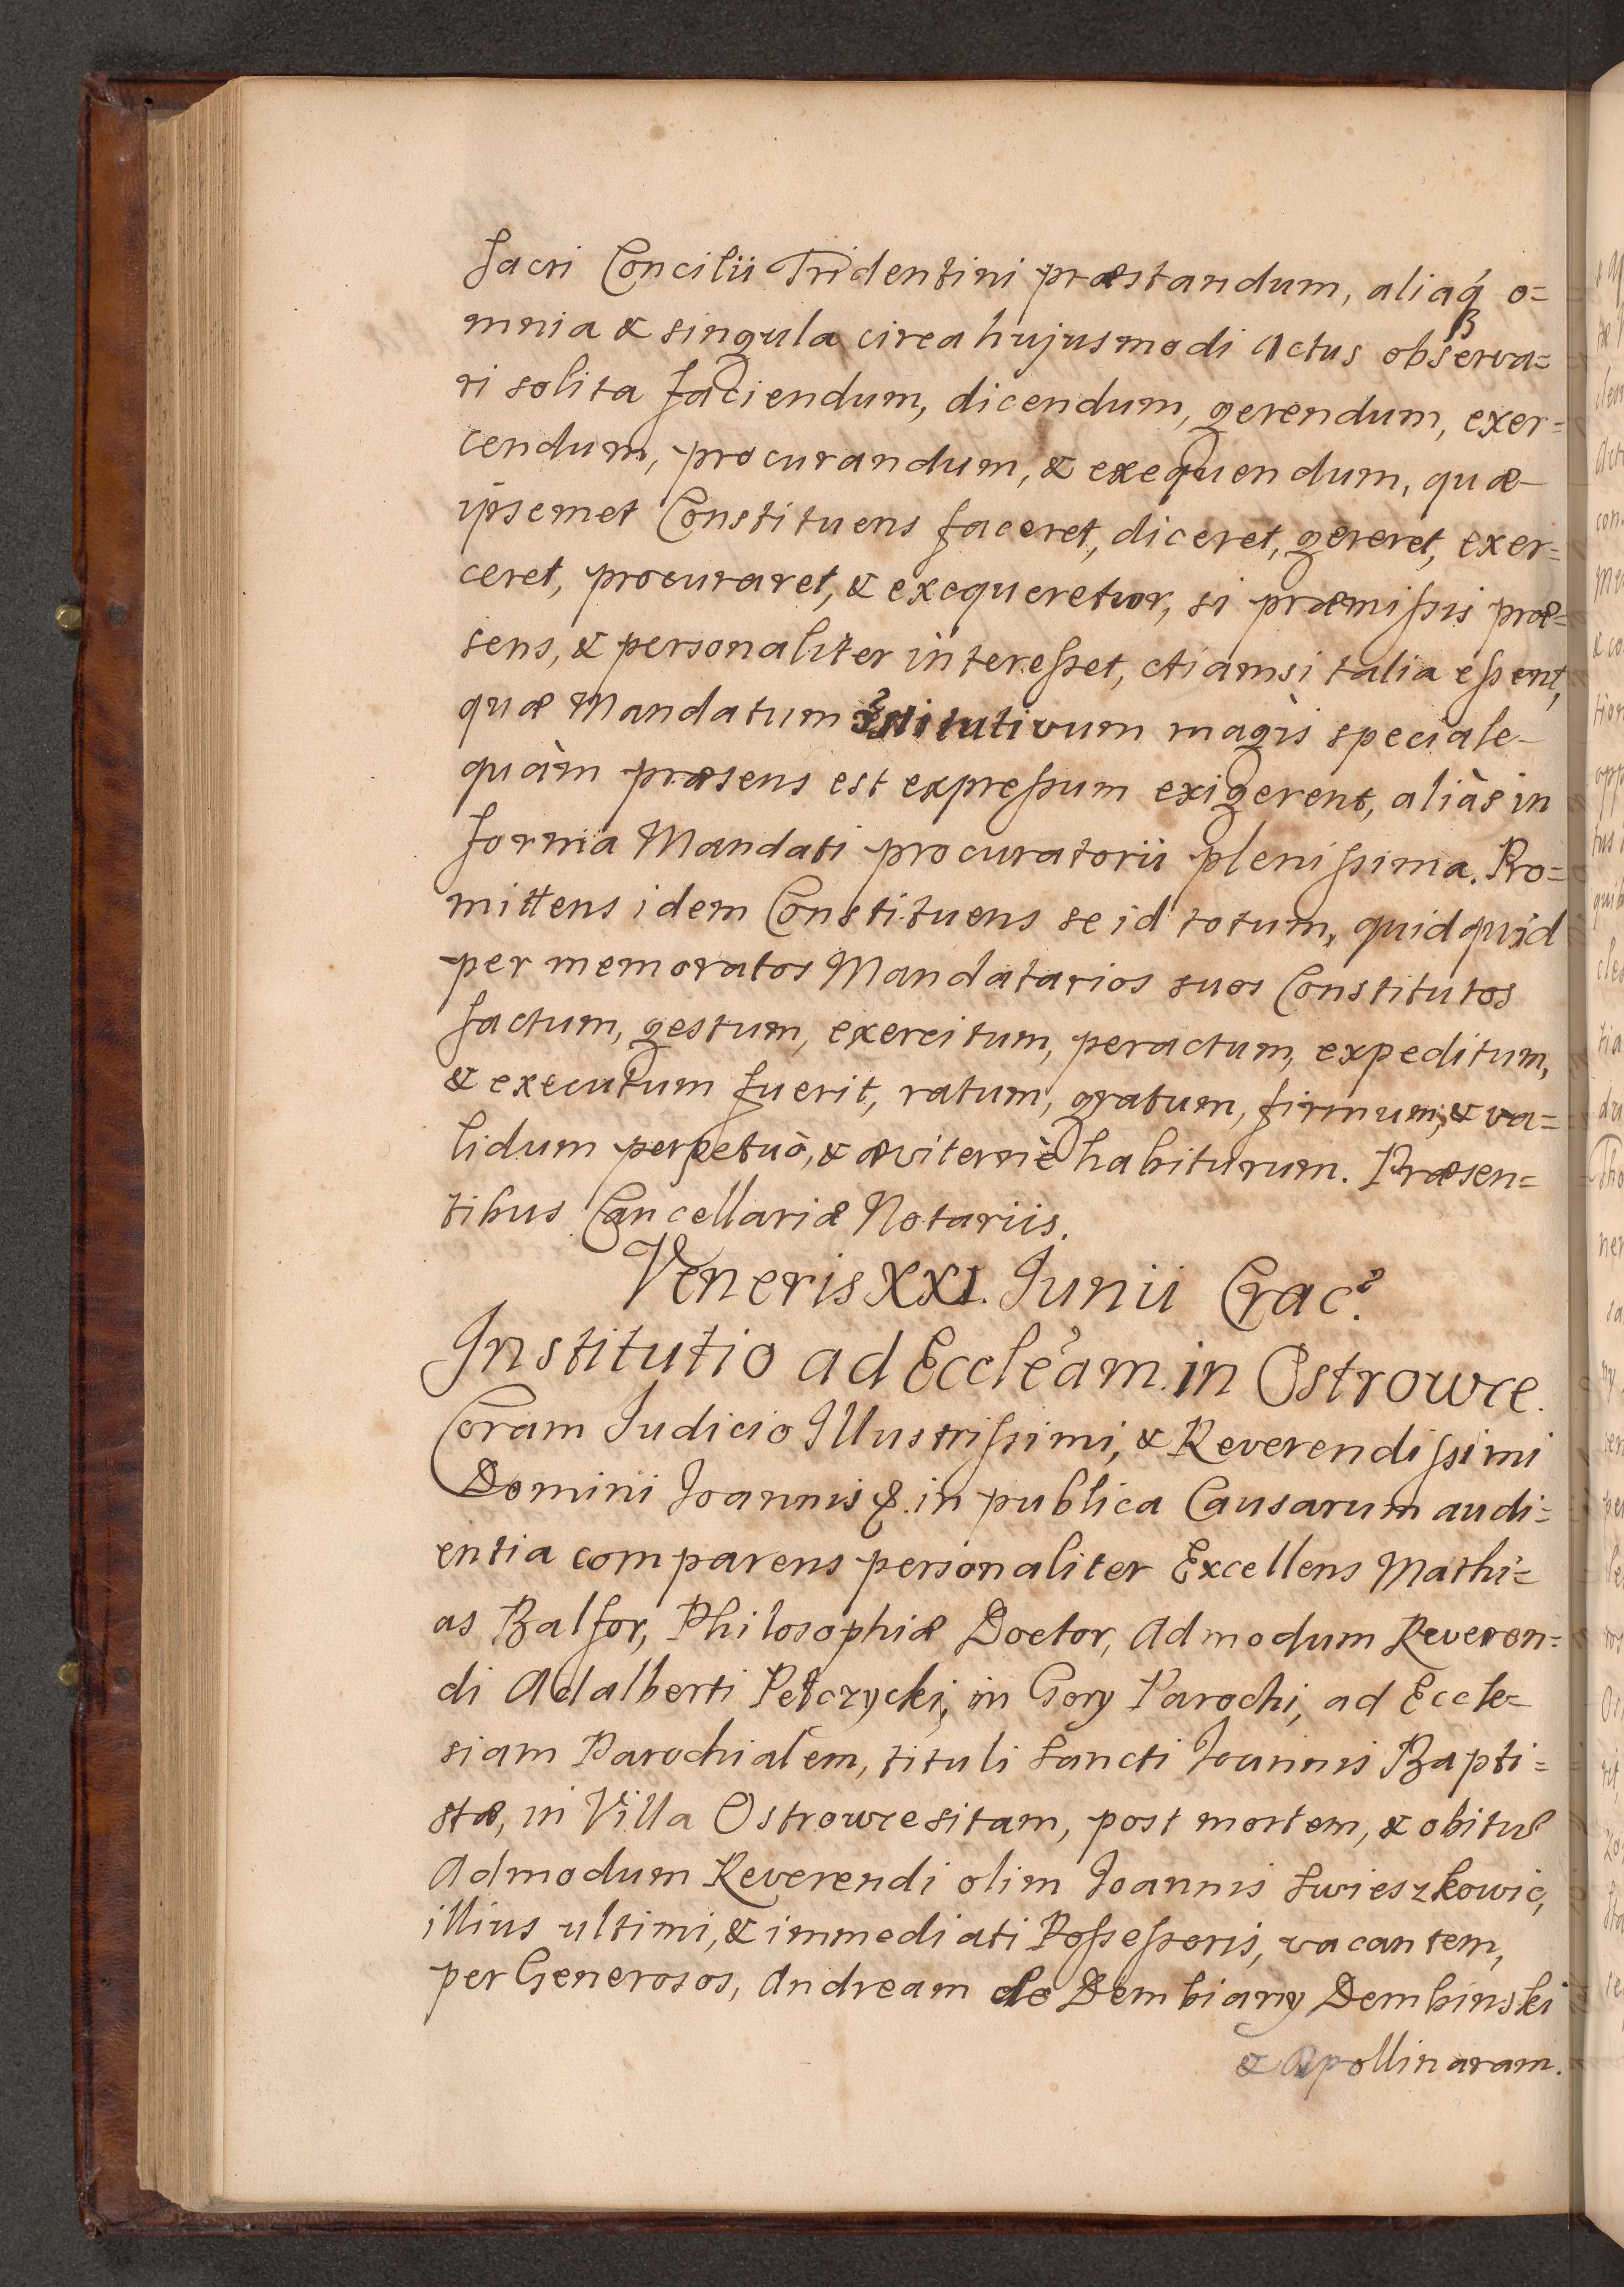 Sacri Concilii Tridentini præstandum, aliaq́ꝫ o=
mnia & singula circa hujusmodi Actus observa=
ri solita faciendum, dicendum, gerendum, exer=
cendum, procurandum, & exequendum, quæ
ipsemet Constituens faceret, diceret, gereret, exer=
ceret, procuraret, & exequeretur, si præmissis præ=
sens, & personaliter interesset, etiamsi talia essent,
quæ Mandatum ꝯstitutivum magìs speciale
quàm præsens est expressum exigerent, aliàs in
forma Mandati procuratorii plenissima. Pro=
mittens idem Constituens se id totum, quidquid
per memoratos Mandatarios suos Constitutos
factum, gestum, exercitum, peractum, expeditum,
& executum fuerit, ratum, gratum, firmum, & va=
lidum perpetuò, & æviternè habiturum. Præsen=
tibus Cancellariæ Notariis.
Veneris XXI. Junii Crac.
Institutio ad Eccleam in Ostrowce.
Coram Judicio Illustrissimi, & Reverendissimi
Domini Joannis &. in publica Causarum audi=
entia comparens personaliter Excellens Mathi=
as Balfor, Philosophiæ Doctor, Admodum Reveren=
di Adalberti Pełczycki, in Gory Parochi, ad Eccle=
siam Parochialem, tituli Sancti Joannis Bapti=
stæ, in Villa Ostrowce sitam, post mortem, & obitum
Admodum Reverendi olim Joannis Swieszkowic,
illius ultimi, & immediati Possessoris, vacantem,
per Generosos, Andream de Dembiany Dembinski
& Apollinaram.